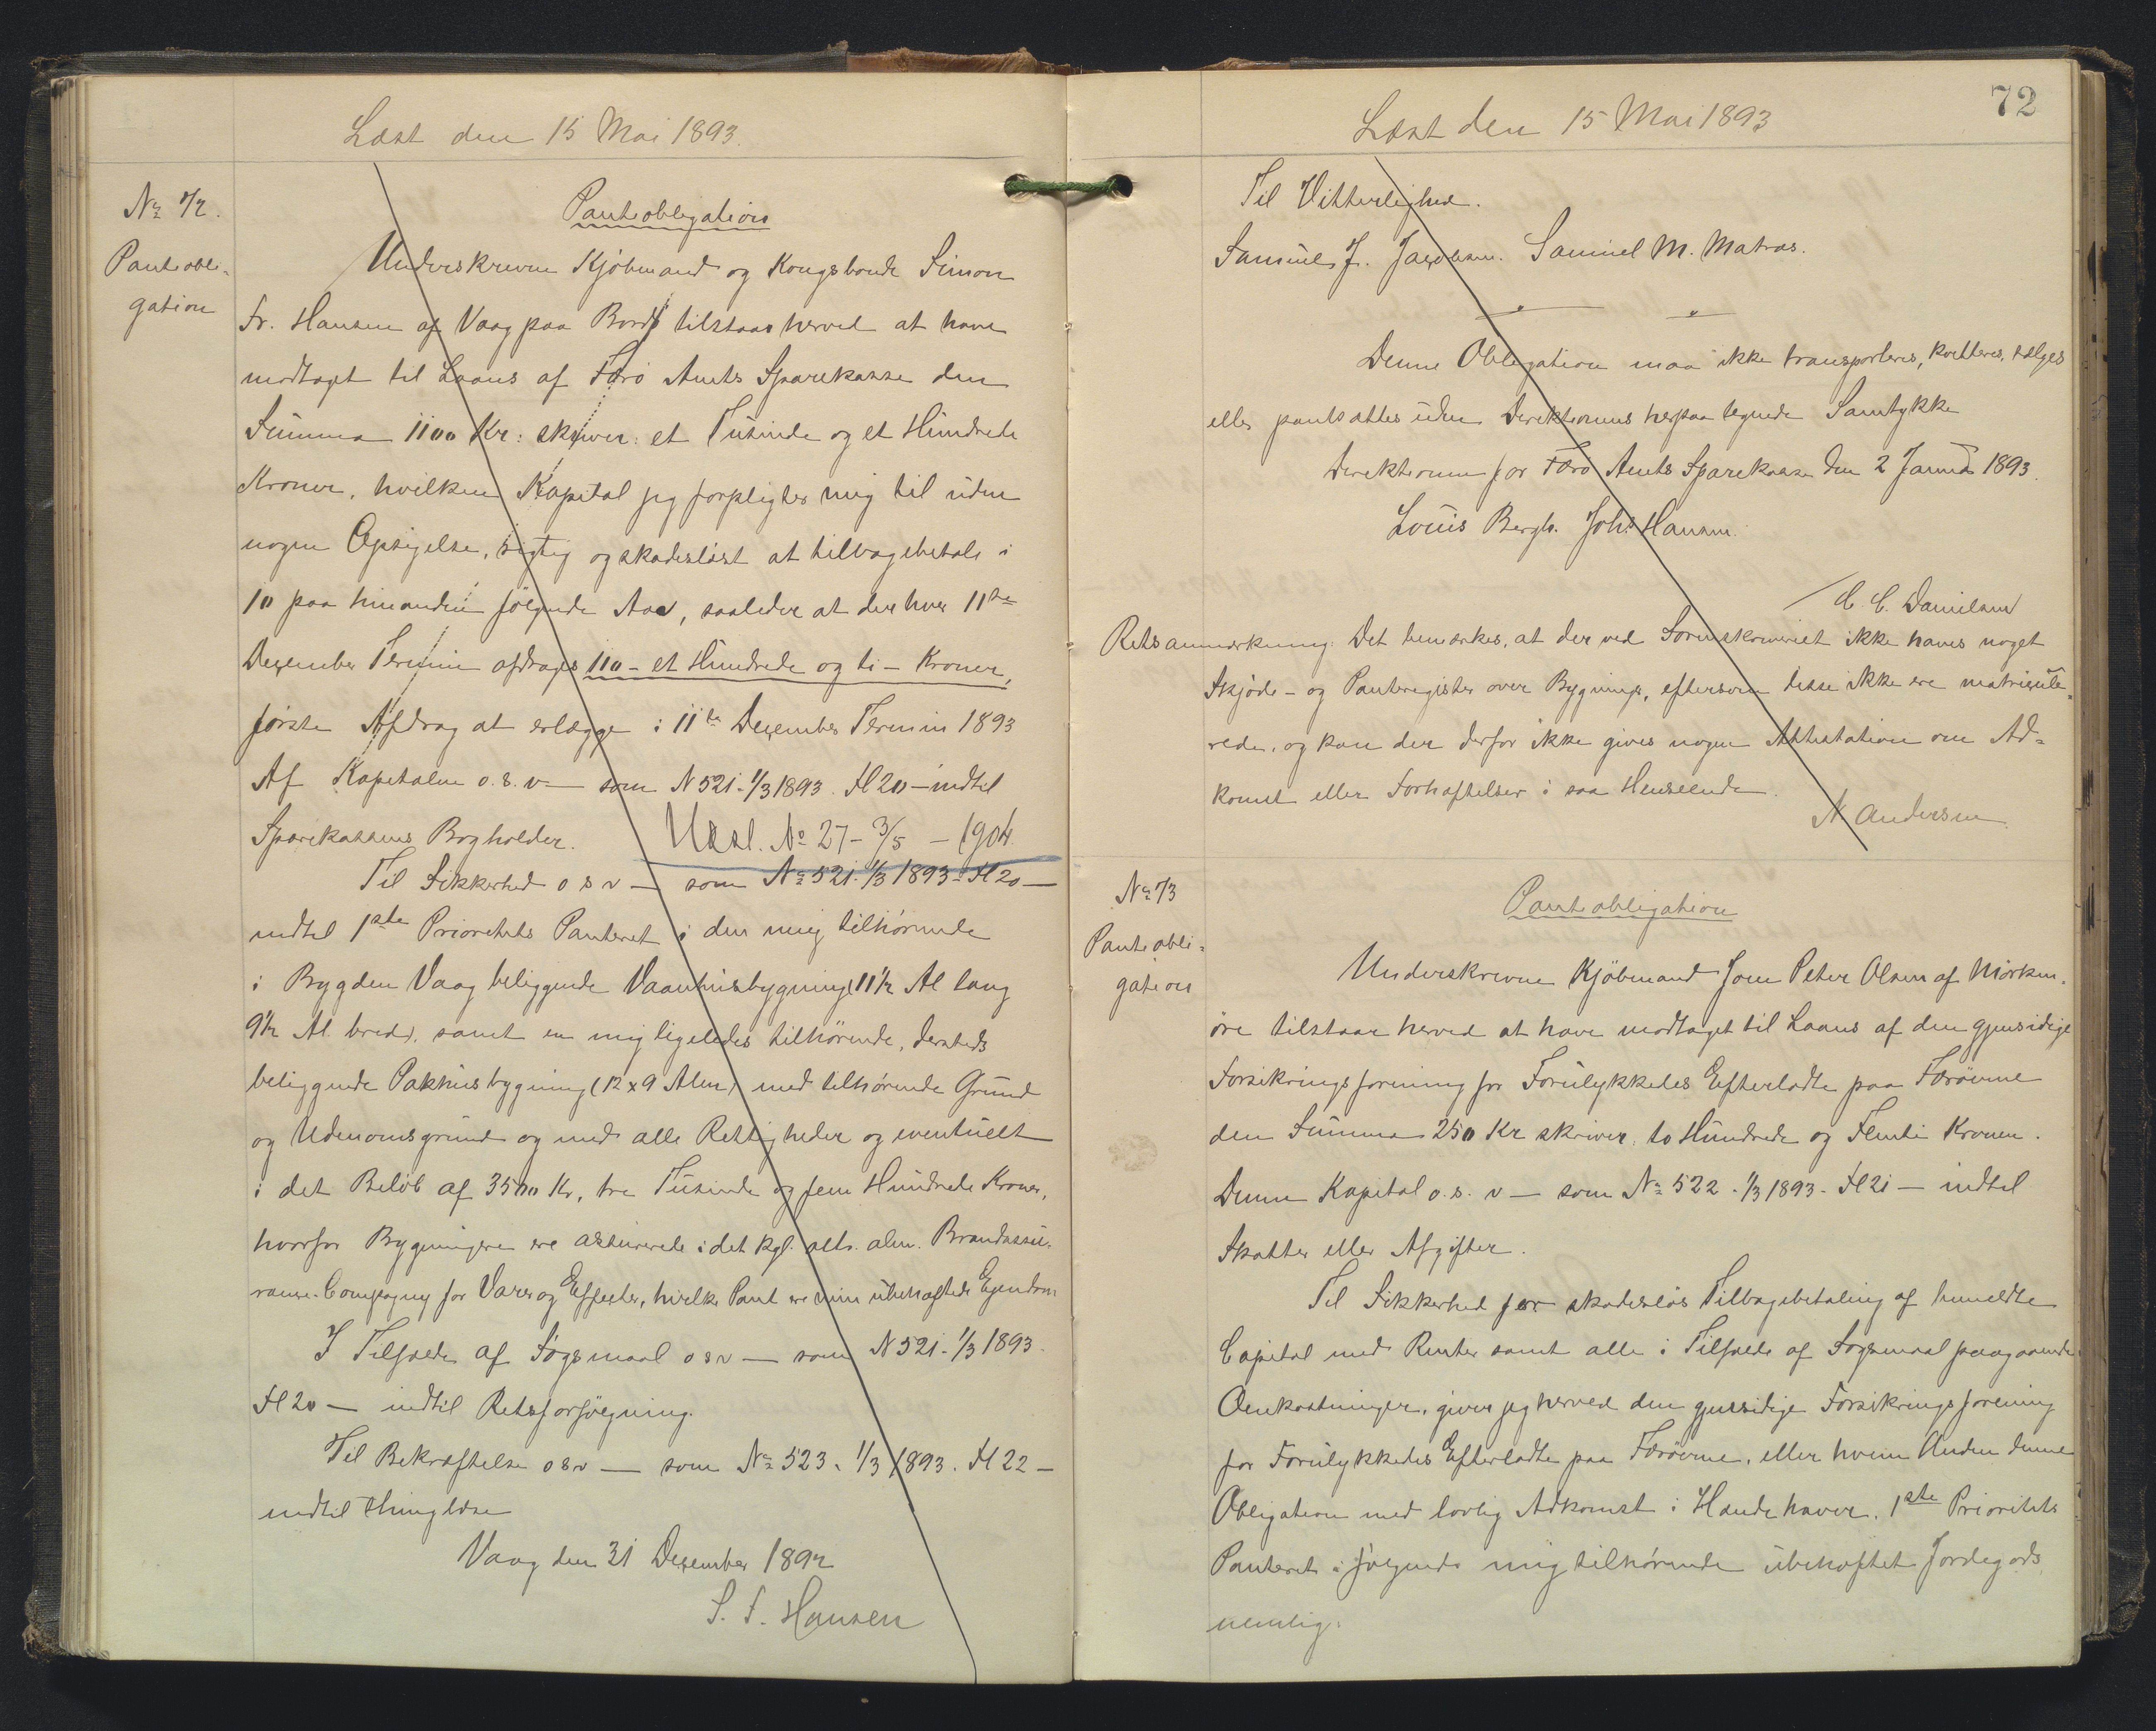 Læst den 15 Mai 1893.
No 72.
Panteobli-
gation
Panteobligation
Underskrevne Kjøbmand og Kongsbonde Simon
Fr. Hansen af Vaag paa Bordø tilstaar herved at have
modtaget til Laans af Færø Amts Sparekasse den
Summa 1100 Kr: skriver: et Tusinde og et Hundrede
Kroner, hvilken Kapital jeg forpligter mig til uden
nogen Opsigelse, rigtig og skadesløst at tilbagebetale i
10 paa hinanden følgende Aar, saaledes at der hver 11te
Dezember Termin afdrages 110 - et Hundrede og ti - Kroner,
første Afdrag at erlægge i 11te Dezember Termin 1893
Af Kapitalen o.s.v. — som N 521. 1/3 1893. Fl 20 — indtil
Sparekassens Bogholder.
Udsl. No 27 - 3/5 - 1904
Til Sikkerhed o s v — som No 521. 1/3 1893. Fl 20 —
indtil 1ste Prioritets Panteret i den mig tilhørende
i Bygden Vaag beliggende Vaanhusbygning (11 1/2 Al lang
9 1/2 Al bred), samt en mig ligeledes tilhørende, dersteds
beliggende Pakhusbygning (12 x 9 Alen) med tilhørende Grund
og Udenomsgrund og med alle Rettigheder og eventuelt
i det Beløb af 3500 Kr, tre Tusinde og fem Hundrede Kroner,
hvorfor Bygningerne ere assurerede i det kgl. octr. alm. Brandassu-
rance-Compagny for Varer og Effecter, hvilke Pant ere min ubehæftede Ejendom
I Tilfælde af Søgsmaal o s v — som N 521. 1/3 1893.
Fl 20 — indtil Retsforfølgning.
Til Bekræftelse o s v — som No 523. 1/3 1893. Fl 22 —
indtil thinglæse
Vaag den 31 Dezember 1892
S. F. Hansen
72
Læst den 15 Mai 1893
Til Vitterlighed.
Samuel J. Jacobsen. Samuel M. Matras.
Denne Obligation maa ikke transporteres, kvitteres, sælges
eller pantsættes uden Direktionens herpaa tegnede Samtykke
Direktionen for Færø Amts Sparekasse den 2 Januar 1893.
Louis Bergh. Johs Hansen.
/ C. C. Danielsen
Retsanmærkning: Det bemærkes, at der ved Sorenskriveriet ikke haves noget
Skjøde- og Panteregister over Bygninger, eftersom disse ikke ere matriculе-
rede, og kan der derfor ikke gives nogen Attestation om Ad-
komst eller Forhæftelser i saa Henseende.
N. Andersen.
No 73
Panteobli-
gation
Panteobligation
Underskrevne Kjøbmand Joen Peter Olsen af Mørken-
øre tilstaar herved at have modtaget til Laans af den gjensidige
Forsikringsforening for Forulykkedes Efterladte paa Færøerne
den Summa 250 Kr skriver to Hundrede og Femti Kroner.
Denne Kapital o. s. v — som No 522. 1/3 1893. Fl 21 — indtil
Skatter eller Afgifter.
Til Sikkerhed for skadesløs Tilbagebetaling af hmeldte
Capital med Renter samt alle i Tilfælde af Søgsmaal paagaaende
Omkostninger, giver jeg herved den gjensidige Forsikringsforening
for Forulykkedes Efterladte paa Færøerne, eller hvem Anden denne
Obligation med lovlig Adkomst i Hænde haver, 1ste Prioritets
Panteret i følgende mig tilhørende ubehæftet Jordegods
nemlig: